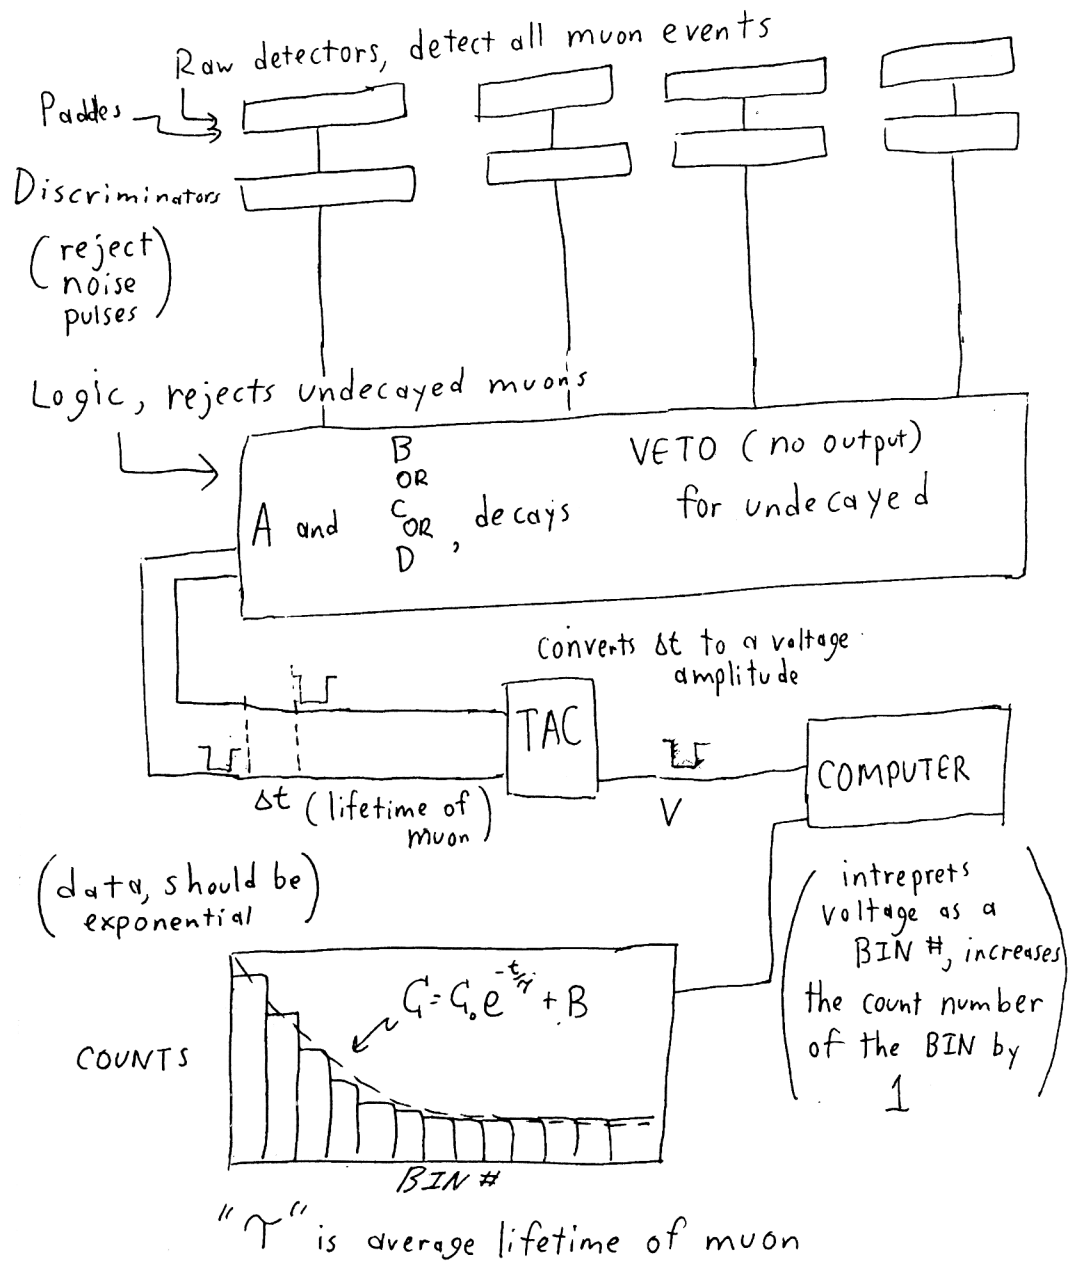 Raw detectors, detect all muon events
Paddles
Discriminators
(reject
noise
pulses)
Logic, rejects undecayed muons
A and B OR C OR D, decays
VETO (no output)
for undecayed
Converts Δt to a voltage
amplitude
TAC
COMPUTER
V
Δt (lifetime of
muon)
(data, should be
exponential)
(intreprets
voltage as a
BIN #, increases
the count number
of the BIN by
1)
C = C₀e^(-t/τ) + B
COUNTS
BIN #
"τ" is average lifetime of muon